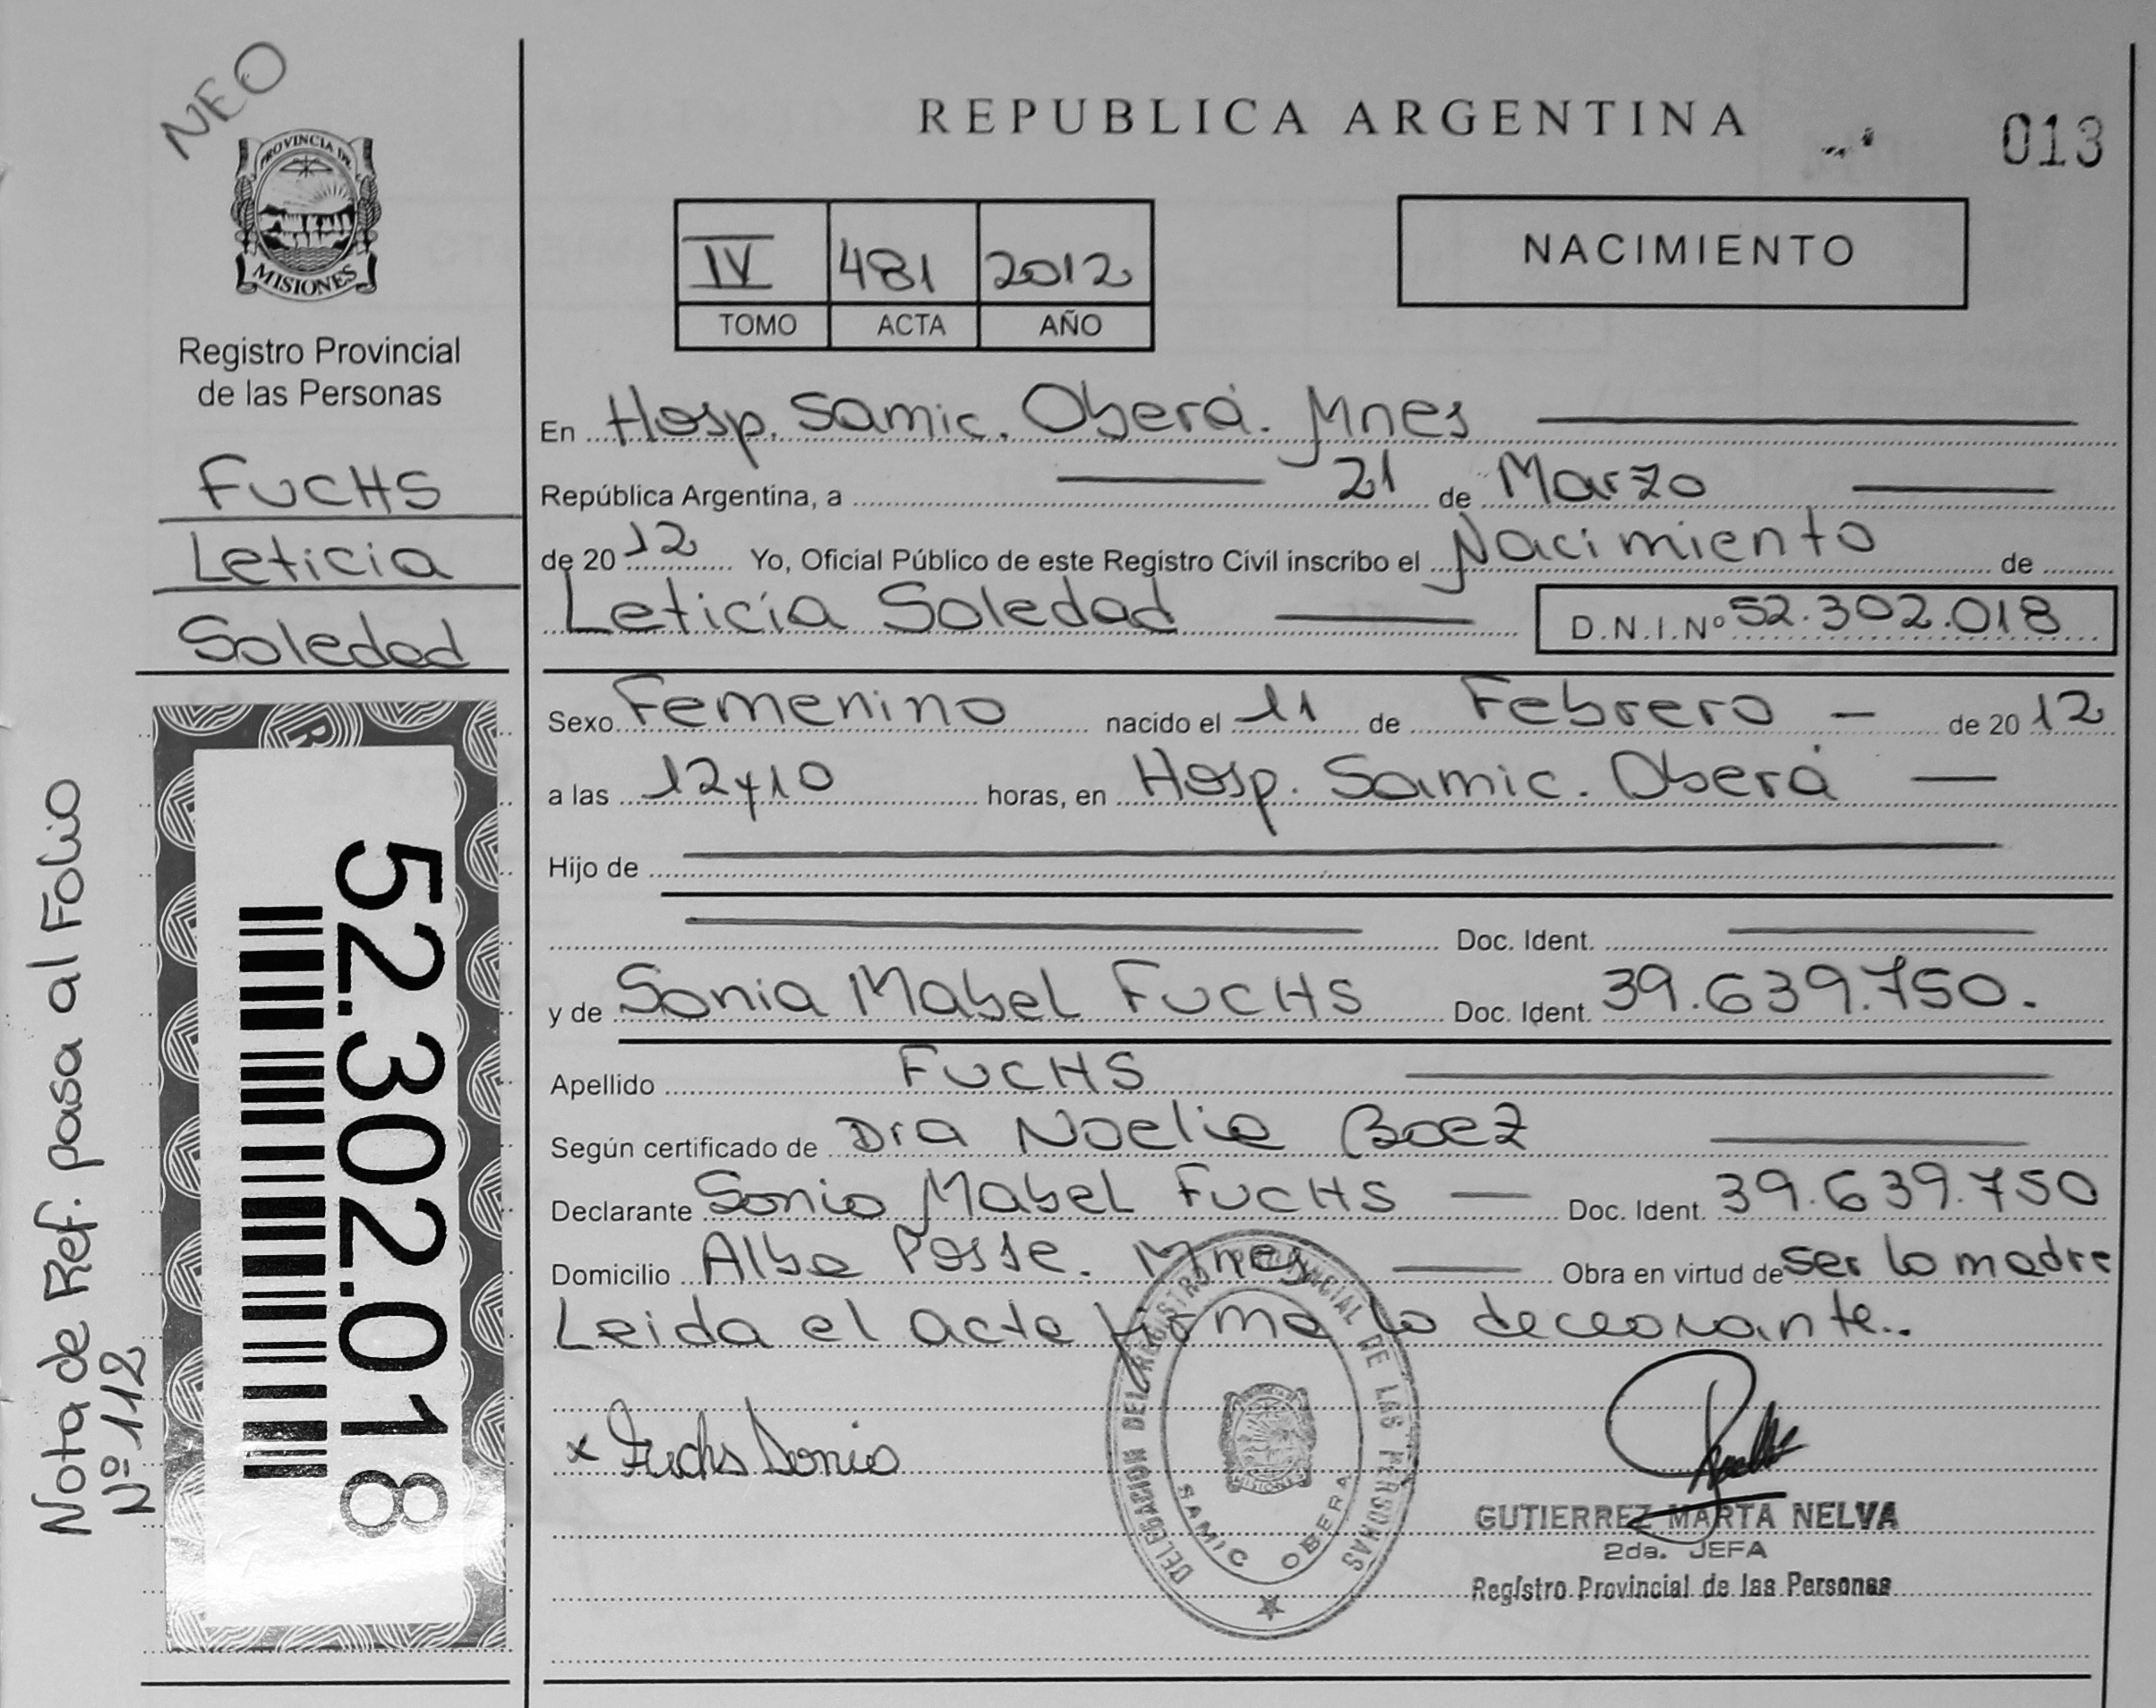 NEO
PROVINCIA DE
MISIONES
Registro Provincial
de las Personas
FUCHS
Leticia
Soledad
52.302.018
Nota de Ref. pasa al Folio
Nº 112
REPUBLICA ARGENTINA
013
IV 481 2012
TOMO ACTA AÑO
NACIMIENTO
En Hosp. Samic. Oberá. Mnes
República Argentina, a 21 de Marzo
de 20 12 Yo, Oficial Público de este Registro Civil inscribo el Nacimiento de
Leticia Soledad D.N.I.Nº 52.302.018
Sexo Femenino nacido el 11 de Febrero de 20 12
a las 12 y 10 horas, en Hosp. Samic. Oberá
Hijo de
Doc. Ident.
y de Sonia Mabel FUCHS Doc. Ident. 39.639.750.
Apellido FUCHS
Según certificado de Dra Noelia Baez
Declarante Sonia Mabel FUCHS Doc. Ident. 39.639.750
Domicilio Alba Posse. Mnes Obra en virtud de ser la madre
Leida el acta firma la
x Fuchs Sonia
DELEGACION DEL REGISTRO PROVINCIAL DE LAS PERSONAS
SAMIC OBERA
MISIONES
GUTIERREZ MARTA NELVA
2da. JEFA
Registro Provincial de las Personas